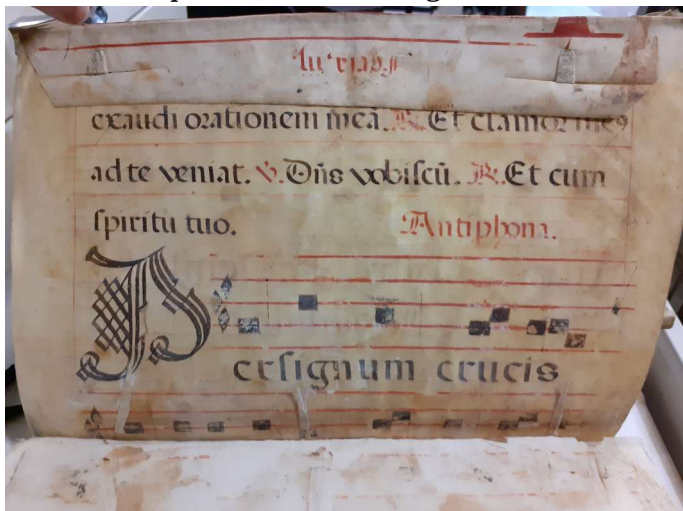 exaudi orationem meā. R. Et clamor meꝰ
ad te veniat. V. Dñs vobiscū. R. Et cum
spiritu tuo. Antiphona.
Persignum crucis